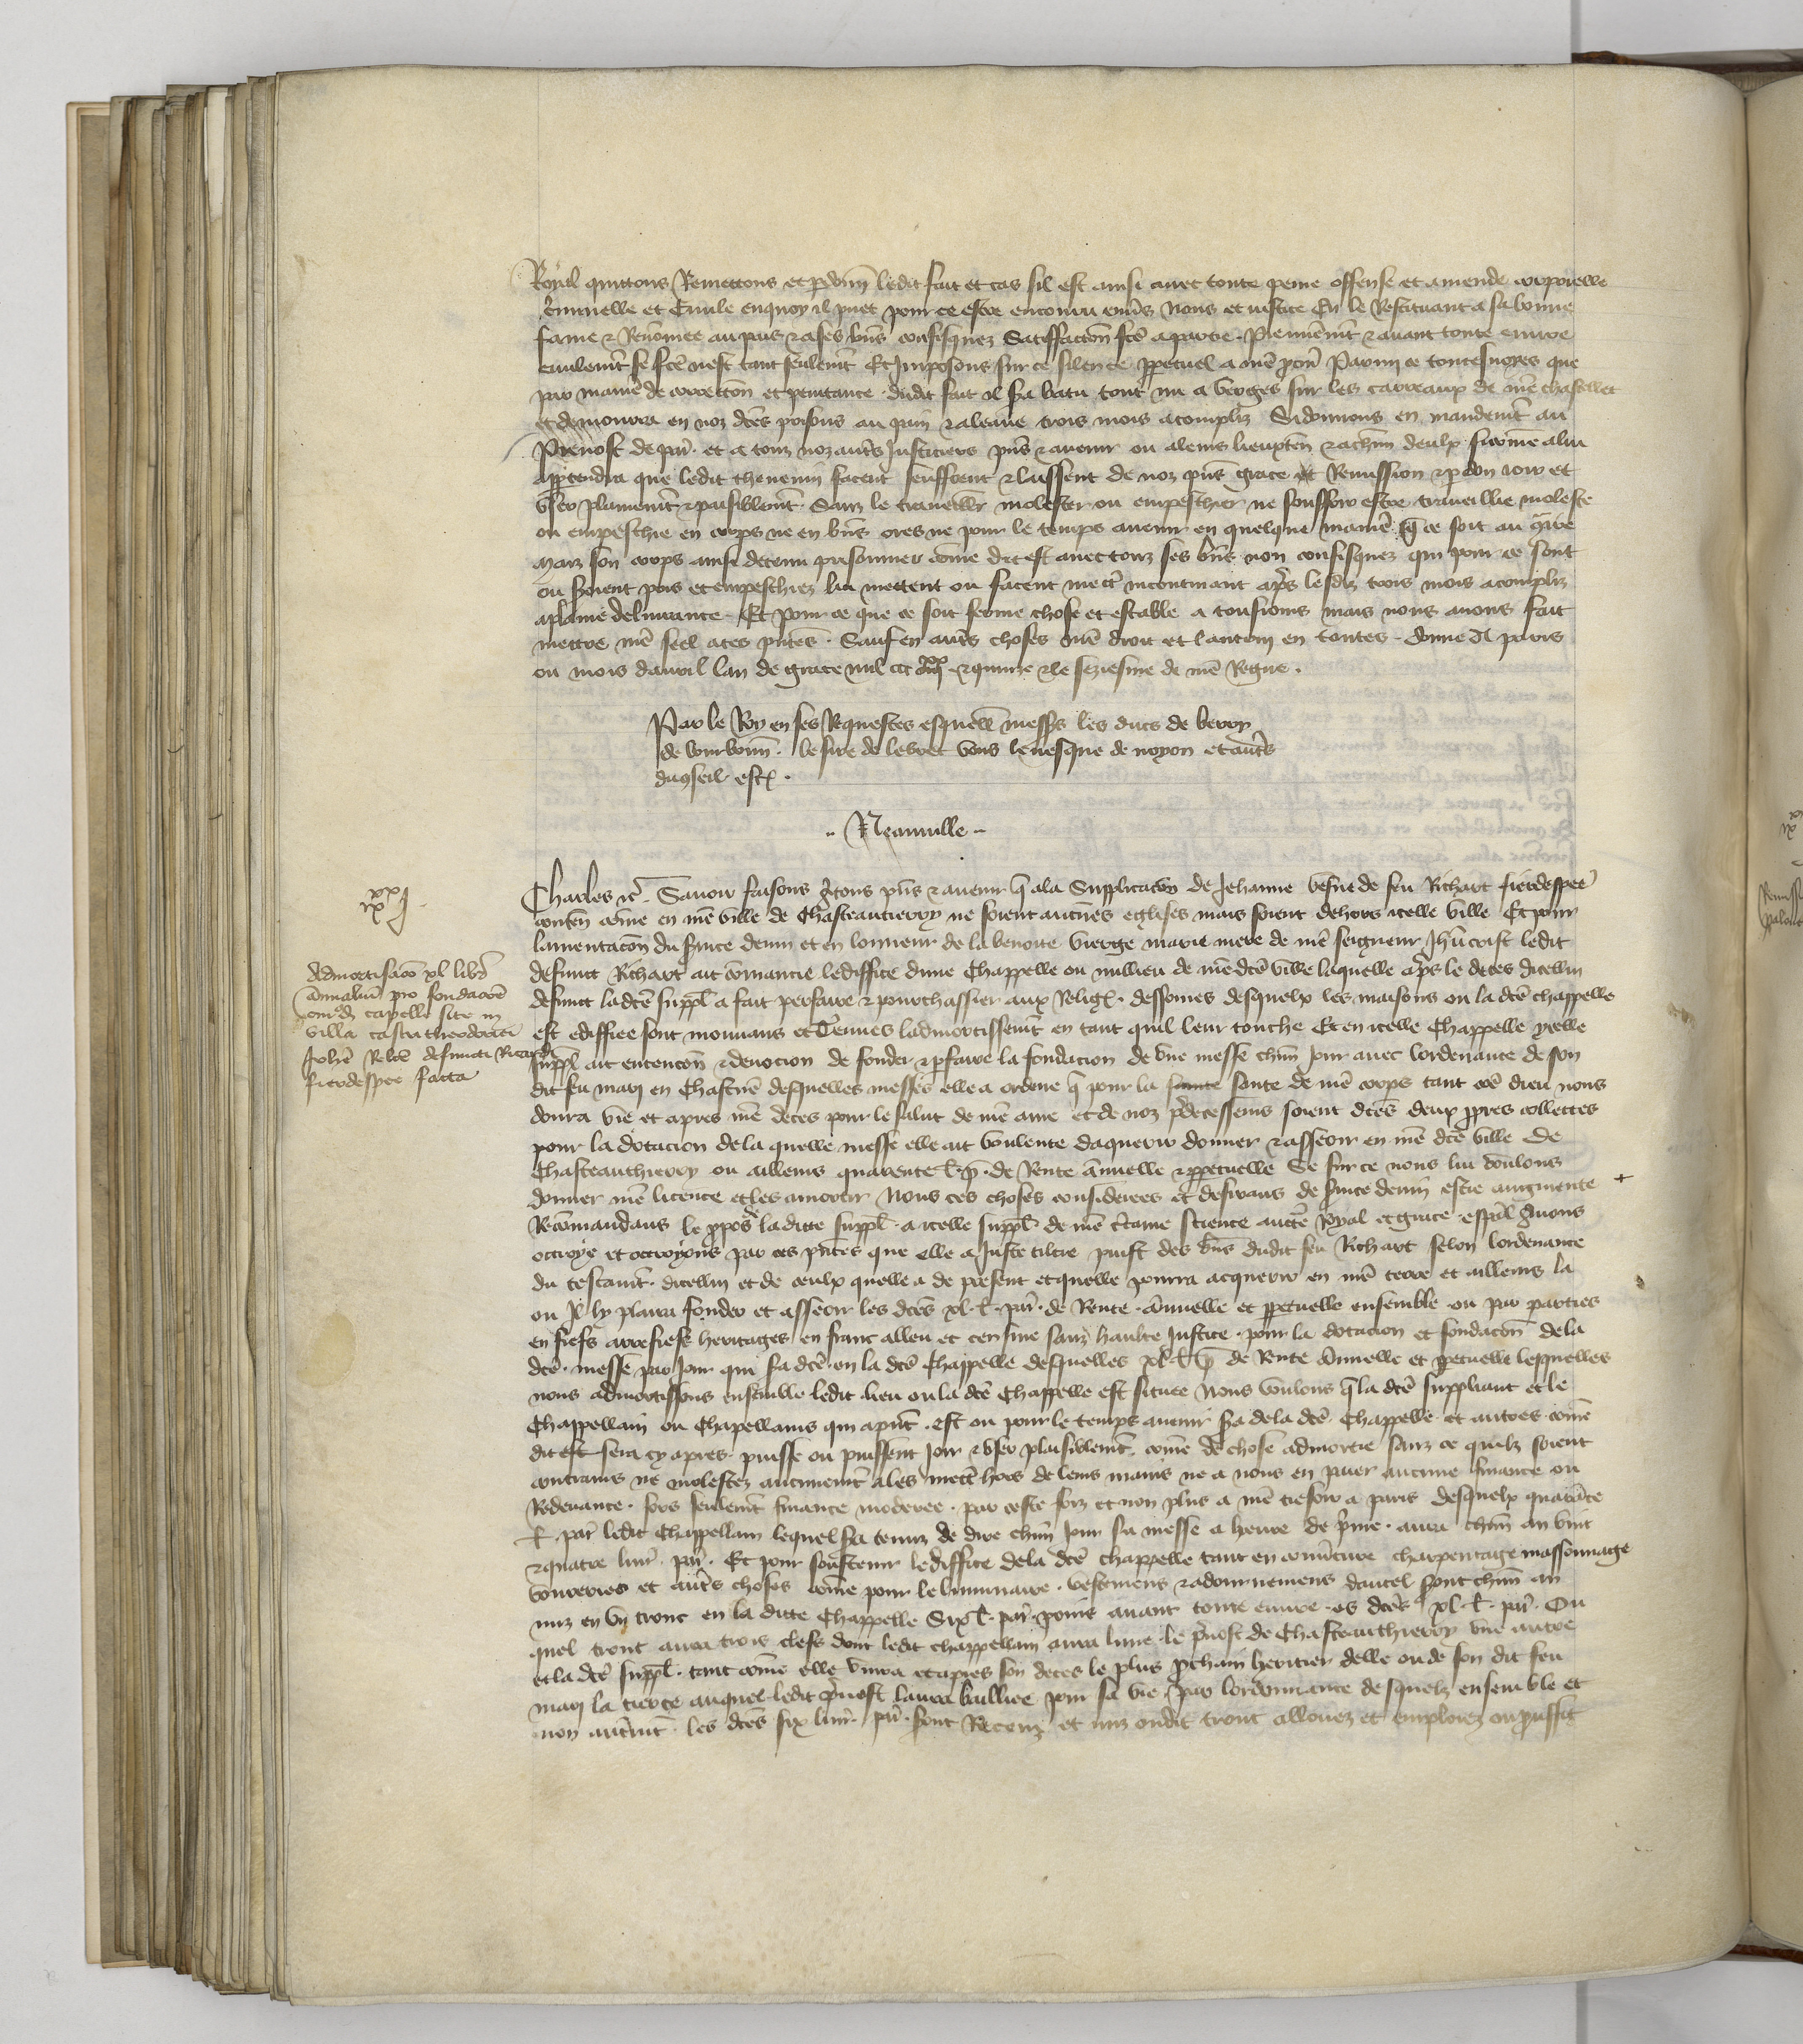 Royal quittons Remettons et pdonn ledit fait et cas sil est ainsi auec toute peine offense et amende corporelle
criminelle et Ciuile enquoy il puet pour ce estre encouru enuers Nous et iustice En le Restituant a sa bonne
fame & Renomee au pais & a ses biens non confisquez Satisfaction fce a partie
ciuilemt se fce nest tant seulemt Et Imposons sur ce silence ppetuel a nre procur Parmi ce toutesuoyes que
par maniere de correction et penitance dudit fait il sera batu tout nu a verges sur les carreaux de nre chastellet
et demourra en noz dces prisons au pain & aleaue trois mois acompliz Si donnons en mandemt au
Preuost de par et a touz noz autrs Justiciers pns & auenir ou a leurs lieuxten & a chun deulx si come a lui
apptendra que ledit theuenin facent seuffrent & laissent de noz pns grace et Remission & pdon ioir et
vser plainemt & paisiblemt Sanz le trauaillier molester ou empeschier ne souffrir estre trauaillie moleste
ou empeschie en corps ne en biens ores ne pour le temps auenir en quelque maniere que ce soit au contraire
Maiz son corps ainsi detenu prisonnier come dit est auec touz ses biens non confisquez qui pour ce sont
ou seroient pris et empeschiez lui mettent ou facent mectre incontinant aprs lesdiz trois mois acompliz
a plaine deliurance Et Pour ce que ce soit ferme chose et estable a tousiours mais nous auons fait
mettre nre seel a ces pntes Sauf en autrs choses nre droit et lautruy en toutes Donne A paris
ou mois dauril lan de grace mil ccc iiiixx & quinze & le seziesme de nre Regne
Par le Roy en ses Requestes esquelles messrs les ducs de berry
de bourbonn le sire de lebret vous leuesque de noyon et autrs
du conseil estoient
Neauville
xxj
ix
Charles &c Sauoir faisons a tous pns & auenir que a la Supplicacion de Jehanne vefue de feu Richart fierdespee
conten come en nre ville de Chasteautierry ne soient aucunes eglises mais soient dehors icelle ville Et pour
laugmentacion du seruice diuin et en lonneur de la benoite vierge marie mere de nre seigneur Jhu crist ledit
defunct Richart ait comancie lediffice dune Chappelle ou millieu de nre dce ville laquelle aprs le deces dicellui
defunct la dce suppl a fait perfaire & pourchassier aux Relig dessomes desquelx les maisons ou la dce chappelle
est ediffiee sont mouuans et Tenues ladmortissemt en tant quil leur touche Et en icelle Chappelle ycelle
suppl ait entencion & deuocion de fonder & pfaire la fondacion de vne messe chun Jour auec lordenance de son
dit feu mary en Chascune desquelles messes elle a ordene que pour la sante de nre corps tant come dieu nous
donra vie et apres nre deces pour le salut de nre ame et de noz predecesseurs soient dces deux propres collectes
pour la dotacion de la quelle messe elle ait voulente daquerir donner & asseoir en nre dce ville De
Chasteauthierry ou ailleurs quarente l p de Rente annuelle & ppetuelle Se sur ce nous lui voulons
donner nre licence et les amortir Nous ces choses considerees et desirans de seruice diuin estre augmente
Recommandans le propos de la dicte suppl a icelle suppl de nre certaine science auctorite Royal et grace espal Auons
octroye et octroyons par ces pntes que elle a Juste tiltre puist des biens dudit feu Richart selon lordenance
du testamt dicellui et de ceulx quelle a de present et quelle pourra acquerir en nre terre et ailleurs la
ou Il ly plaira fonder et asseoir les dces xl l par de Rente Annuelle et ppetuelle ensemble ou par parties
en fiefs arrefiefs heritages en franc alleu et censiue sanz haulte Justice pour la dotacion et fondacion de la
dce messe par Jour qui sera dce en la dce Chappelle desquelles xl l p de Rente Annuelle et ppetuelle lesquelles
nous admortissons ensemble ledit lieu ou la dce Chappelle est situee Nous voulons que la dce suppliant et le
Chappellain ou Chapellains qui a pnt est ou pour le temps auenir sera de la dce Chappelle et autres come
dit est sera cy apres puisse ou puissent Joir & vser plaisiblemt come de chose admortie sanz ce quilz soient
contrains ne molestez aucunemt a les mectre hors de leurs mains ne a nous en paier aucune finance ou
Redeuance fors seulemt finance moderee par ceste foiz et non plus a nre tresor a paris Desquelx quarante
l par ledit Chappellain lequel sera tenuz de dire chun Jour sa messe a heure de prime aura chun an vint
& quatre liur par Et pour soustenir lediffice de la dce chappelle tant en couuerture charpentage massonnage
verrieres et autrs choses come pour le luminaire vestemens & adournemens dautel seront chun an
mis en vn tronc en la dicte Chappelle Six l par pris auant toute euure es dces xl l par Ou
quel tronc aura trois clefs dont ledit chappellain aura lune le preuost de Chasteauthierry vne autre
et la dce suppl tant come elle viura et apres son deces le plus prochain heritier delle ou de son dit feu
mary la tierce auquel ledit preuost laura baillee pour sa vie Par lordonnance desquelz ensemble et
non autremt les dces six liur par seront Receuz et mis oudit tronc allouez et emploiez ou prouffit
Admortisacio xl librarum
annualium pro fondacione
capelle site in
villa castri theodorici
Johe Relce defuncti Ricardi
fierdespee facta